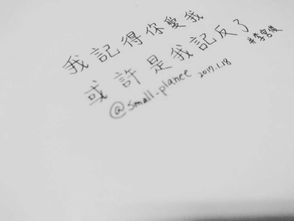 我記得你愛我
或許是我記反了
@small_planee 2017.1.18